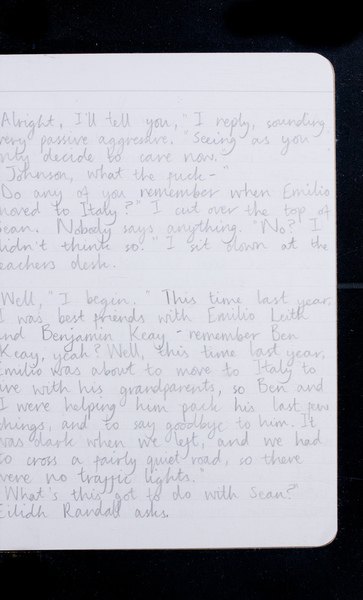 Alright, I'll tell you," I reply, sounding
very passive aggressive. "Seeing as you
only decide to care now."
"Johnson, what the fuck-"
"Do any of you remember when Emilio
moved to Italy?" I cut over the top of
Sean. Nobody says anything. "No? I
didn't think so." I sit down at the
teachers desk.
"Well," I begin. "This time last year,
I was best friends with Emilio Leith
and Benjamin Keay - remember Ben
Keay, yeah? Well, this time last year,
Emilio was about to move to Italy to
live with his grandparents, so Ben and
I were helping him pack his last few
things, and to say goodbye to him. It
was dark when we left, and we had
to cross a fairly quiet road, so there
were no traffic lights."
"What's this got to do with Sean?"
Eilidh Randall asks.